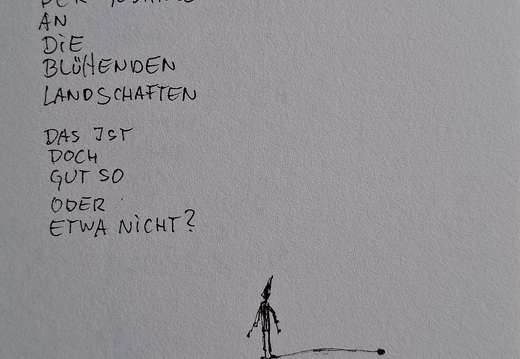 DER
AN
DIE
BLÜHENDEN
LANDSCHAFTEN
DAS IST
DOCH
GUT SO
ODER
ETWA NICHT?